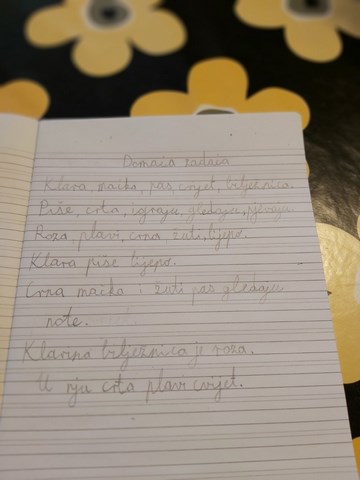 Domaća zadaća
Klara, mačka, pas, cvijet, bilježnica.
Piše, crta, igraju, gledaju, pjevaju.
Roza, plavi, crna, žuti, lijepo.
Klara piše lijepo.
Crna mačka i žuti pas gledaju
note.
Klarina bilježnica je roza.
U nju crta plavi cvijet.